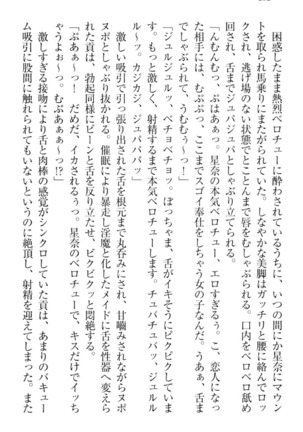 困惑したまま熱烈ベロチューに酔わされているうちに、いつの間にか星奈にマウン
トを取られ馬乗りにまたがられていた。しなやかな美脚はガッチリと腰に絡んでロッ
クされ、逃げ場のない状態でとことんまで唇をむしゃぶられる。口内をベロベロ舐め
回され、舌までジュパジュパとしゃぶり立てられる。
「んむんむっ、ぷはあぁっ。星奈の本気ベロチュー、エロすぎるぅっ。こ、恋人になっ
た相手には、むぷぷっ、ここまでスゴイ奉仕をしちゃう女の子なんだ。うあぁ、舌ま
でしゃぶられて、うむむぅーっ！」
「ジュルルッ、ベチョベチョッ。ぼっちゃま、舌がイキそうにビクビクしていま
す。もっと激しく、射精するまで本気ベロチューします。チュパチュパッ、ジュルル
ル〜ッ。カジカジ、ジュパパパッ」
激しい吸引で引っ張り出された舌を根元まで丸呑みにされ、甘噛みされながらヌポ
ヌポとしゃぶり抜かれる。催眠により暴走し淫魔と化したメイドに舌を性器へ変えら
れた貢は、勃起同様にビーンと舌を反り立たせ、ビクビクッと悶絶する。
「ぷあぁ〜っ！　だめだ、イカされるぅっ。星奈のベロチューで、キスだけでイッち
ゃうよぉ〜っ。むぷあぁぁ〜っ!?」
激しすぎる接吻により舌と肉棒の感覚がシンクロしていた貢は、あまりのバキュー
ム吸引に股間に触れられてもいないというのに絶頂し、射精を迎えてしまった。また